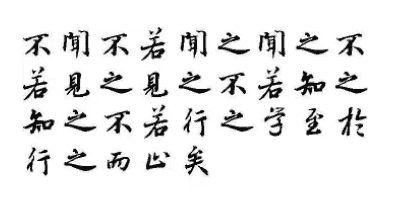 不闻不若闻之闻之不
若见之见之不若知之
知之不若行之学至于
行之而止矣